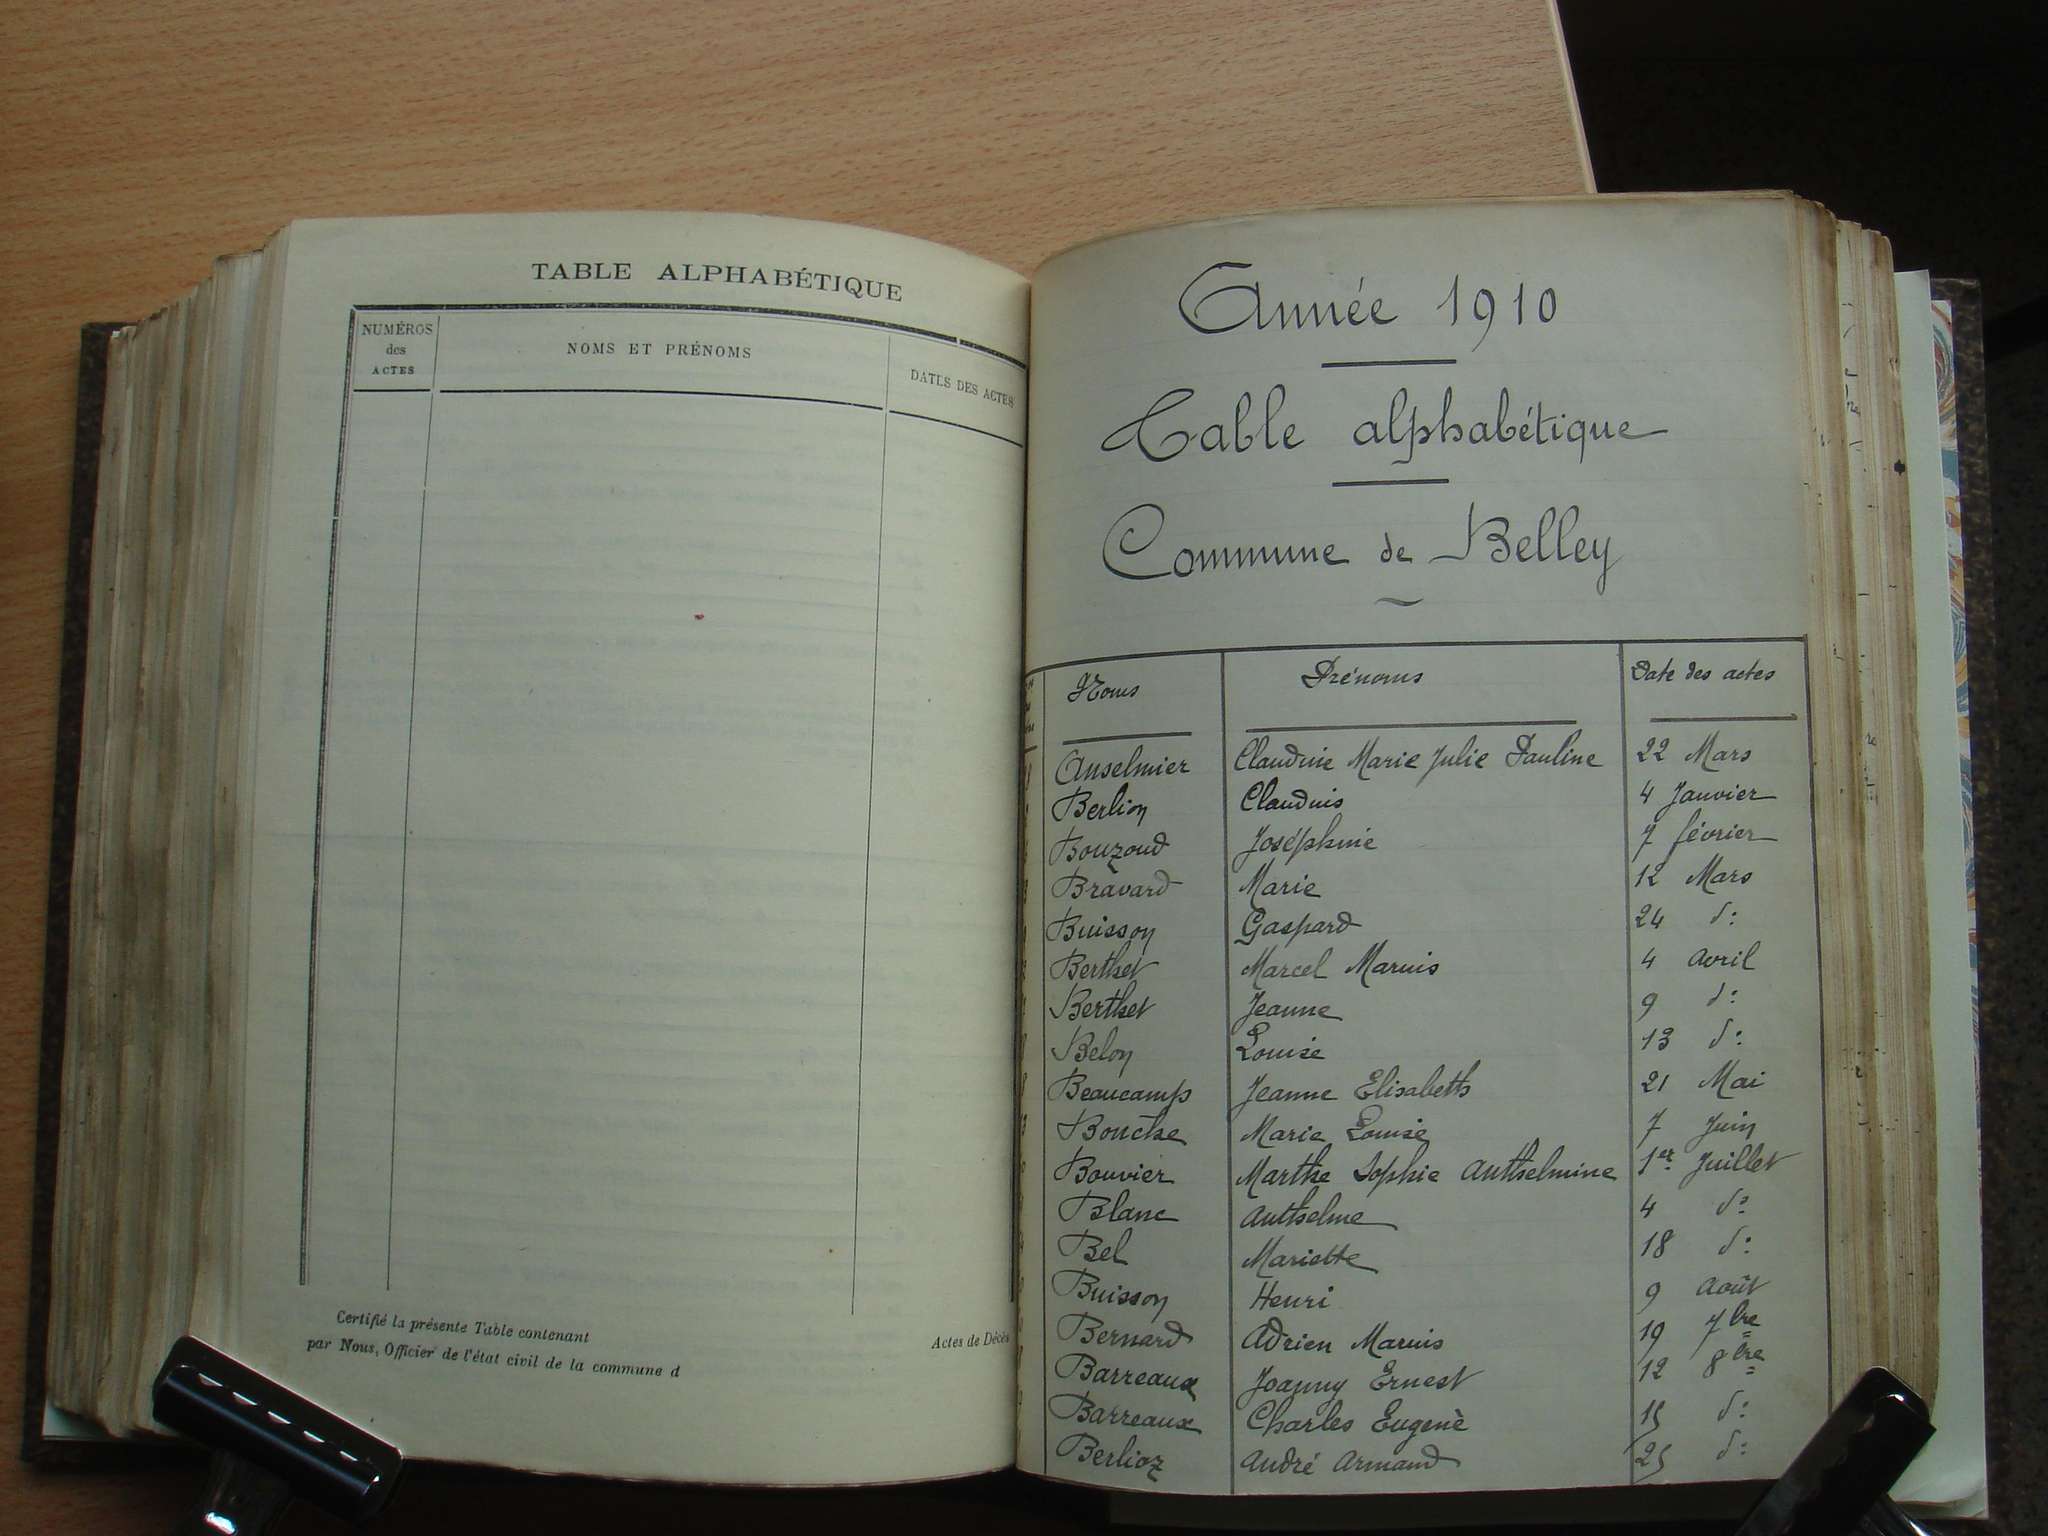 TABLE ALPHABÉTIQUE
NUMÉROS des ACTES
NOMS ET PRÉNOMS
DATES DES ACTES
Certifié la présente Table contenant
par Nous, Officier de l'état civil de la commune d
Actes de Décès
Année 1910
Table alphabétique
Commune de Belley
Noms Prénoms Date des actes
Anselmier Claudine Marie Julie Pauline 22 Mars
Berlion Claudius 4 Janvier
Bouzoud Joséphine 7 février
Bravard Marie 12 Mars
Buisson Gaspard 24 do
Berthet Marcel Marius 4 Avril
Berthet Jeanne 9 do
Belon Louise 13 do
Beaucamp Jeanne Elisabeth 21 Mai
Bouche Marie Louise 7 Juin
Bouvier Marthe Sophie Anthelmine 1er Juillet
Blanc Anthelme 4 do
Bel Mariette 18 do
Buisson Henri 9 Août
Bernard Adrien Marius 19 7bre
Barreaux Joanny Ernest 12 8bre
Barreaux Charles Eugène 15 do
Berlioz André Armand 25 do